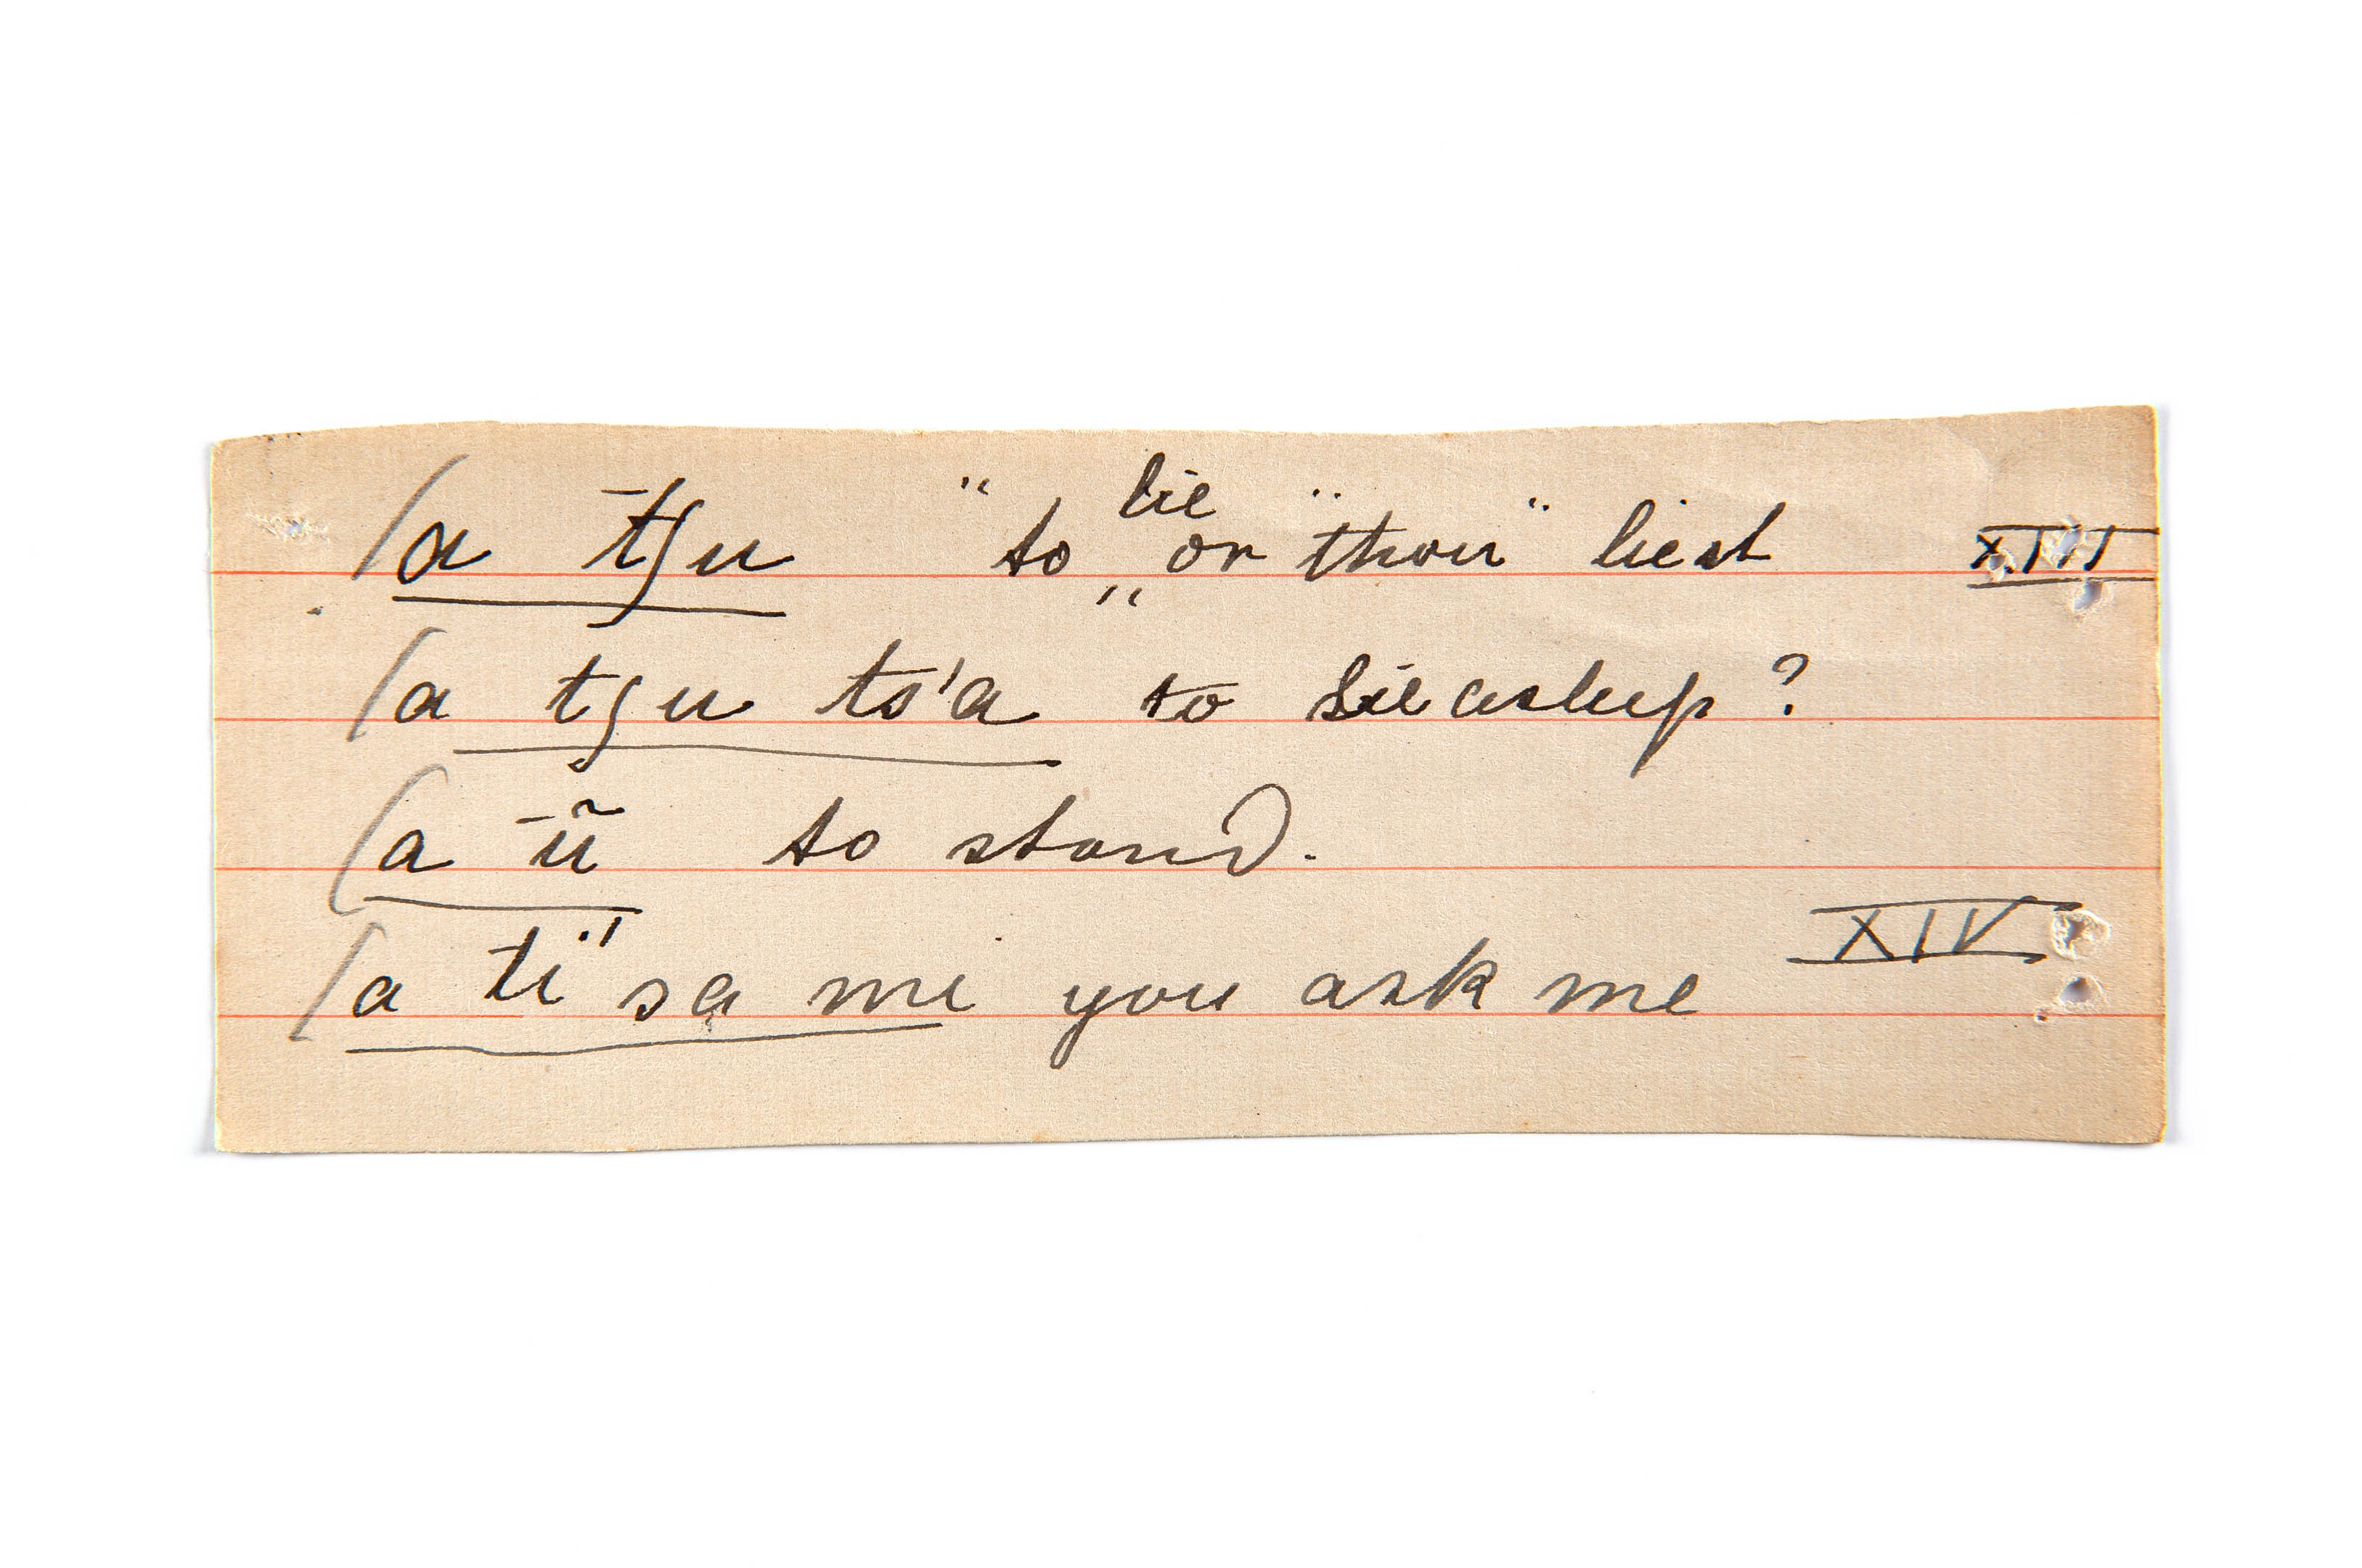 /a t̄ʃu " to „ lie or "thou" liest XIII
/a tʃu ts'a to lie asleep?
/a -ũ to stand.
/a ti' sa mi you ask me XIV